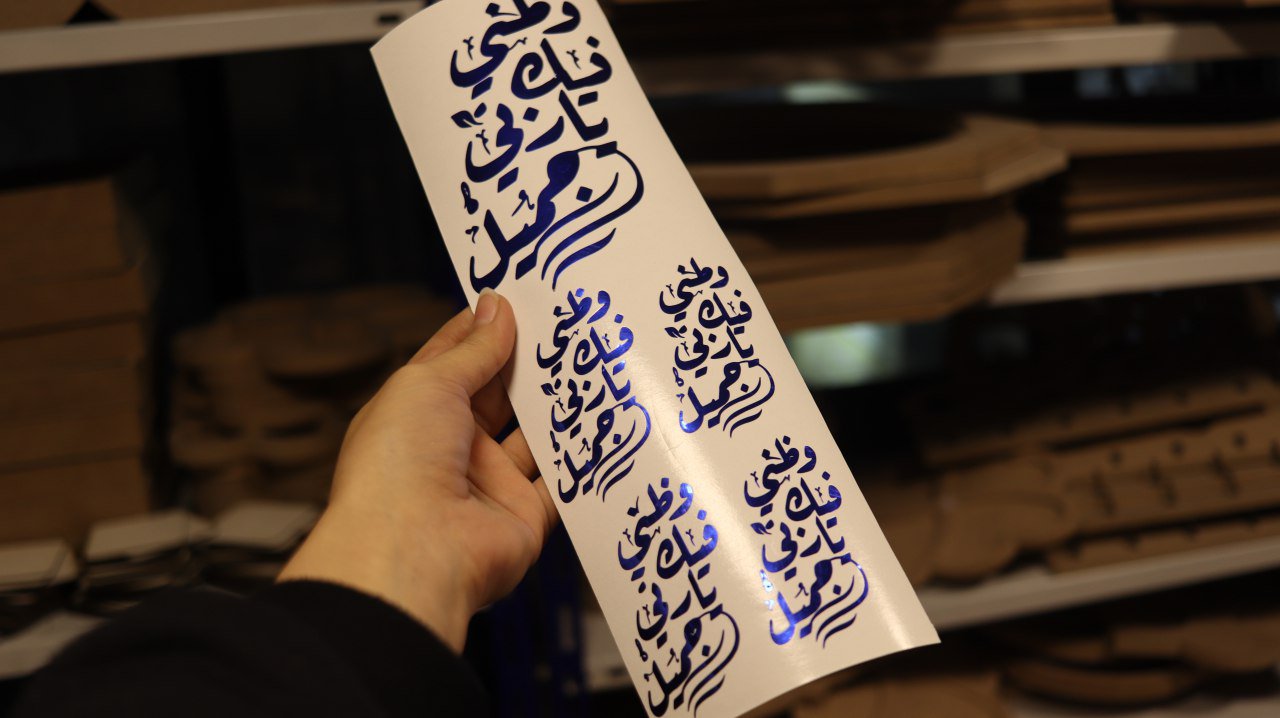 وطني
فيك
يا ربي
جميل
وطني
فيك
يا ربي
جميل
وطني
فيك
يا ربي
جميل
وطني
فيك
يا ربي
جميل
وطني
فيك
يا ربي
جميل